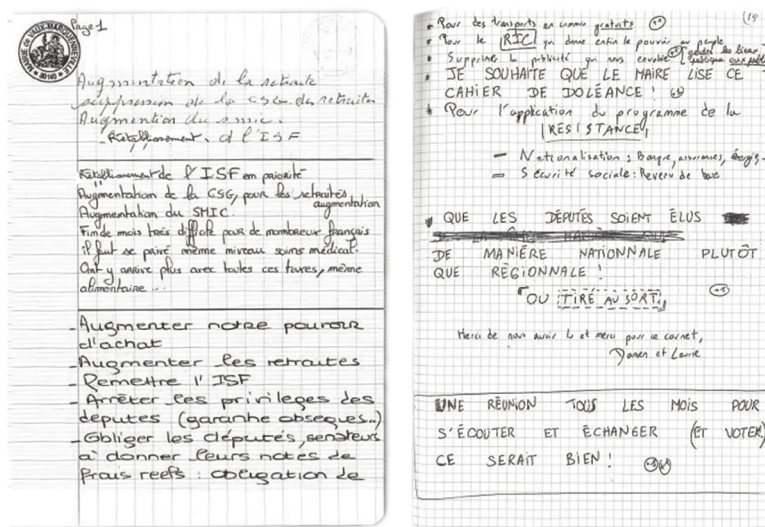 Page 1
MAIRIE de VAUX-MARQUENNEVILLE
* 80140 *
Augmentation de la retraite
suppression de la CSG des retraites
Augmention du smic.
- Rétablissement. d l'ISF
Rétablissement de l'ISF en priorité
Augmentation de la CSG, pour les retraités
Augmentation du SMIC. augmentation
Fin de mois très difficile pour de nombreux français
il faut se privé même niveau soins médical.
Ont y arrive plus avec toutes ces taxes, même
alimentaire ...
- Augmenter notre pouvoir
d'achat
- Augmenter les retraites
- Remettre l'ISF
- Arrêter les privileges des
députes (garantie obsèques..)
- Obliger les députés, senateurs
a donner leurs notes de
frais reels : obligation de
(19
* Pour des transports en commun gratuits +1
* Pour le RIC qui donne enfin le pouvoir au peuple
* Supprimer la publicité qui nous envahie
* JE SOUHAITE QUE LE MAIRE LISE CE
CAHIER DE DOLÉANCE !
* Pour l'application du programme de la
RESISTANCE,
- Nationalisation : Banque, assurances, énergie,
- Sécurité sociale : Revenu de base
* QUE LES DÉPUTÉS SOIENT ÉLUS
DE MANIÈRE NATIONNALE PLUTÔT
QUE RÉGIONNALE !
OU TIRÉ AU SORT, +1
Merci de nous avoir lu et merci pour ce carnet,
et Laurie
UNE RÉUNION TOUS LES MOIS POUR
S'ÉCOUTER ET ÉCHANGER (ET VOTER)
CE SERAIT BIEN ! +1